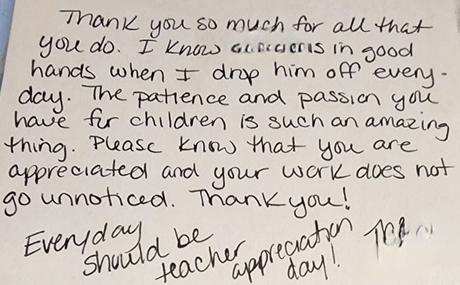 Thank you so much for all that
you do. I know is in good
hands when I drop him off every-
day. The patience and passion you
have for children is such an amazing
thing. Please know that you are
appreciated and your work does not
go unnoticed. Thank you!
Everyday
should be
teacher
appreciation
day!